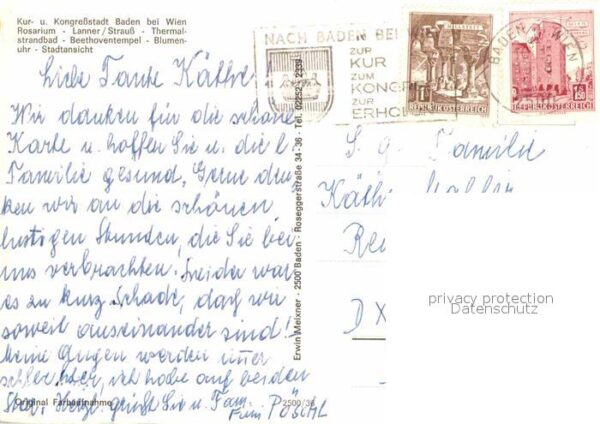 Kur- u. Kongreßstadt Baden bei Wien
Rosarium - Lanner / Strauß - Thermal-
strandbad - Beethoventempel - Blumen-
uhr - Stadtansicht
Liebe Tante Käthe!
Wir danken für die schöne
Karte u. hoffen Sie u. die l.
Familie gesund. Gerne den-
ken wir an die schönen
lustigen Stunden, die Sie bei
uns verbrachten. Leider war
es zu kurz. Schade, daß wir
soweit auseinander sind!
Meine Augen werden immer
schlechter, ich habe auf beiden
Star. Herzl. grüßt Sie u. Fam.
Fini PÖSCHL
Original Farbaufnahme
2500/36
Erwin Meixner - 2500 Baden - Roseggerstraße 34-36 - Tel. 02252 2339
NACH BADEN BEI
ZUR
KUR
ZUM
KONGRE
ZUR
ERHOLU
REPUBLIK ÖSTERREICH
BADEN WIEN
REPUBLIK ÖSTERREICH
1.50
S. g. Familie
Käthe
Re
D X
privacy protection
Datenschutz